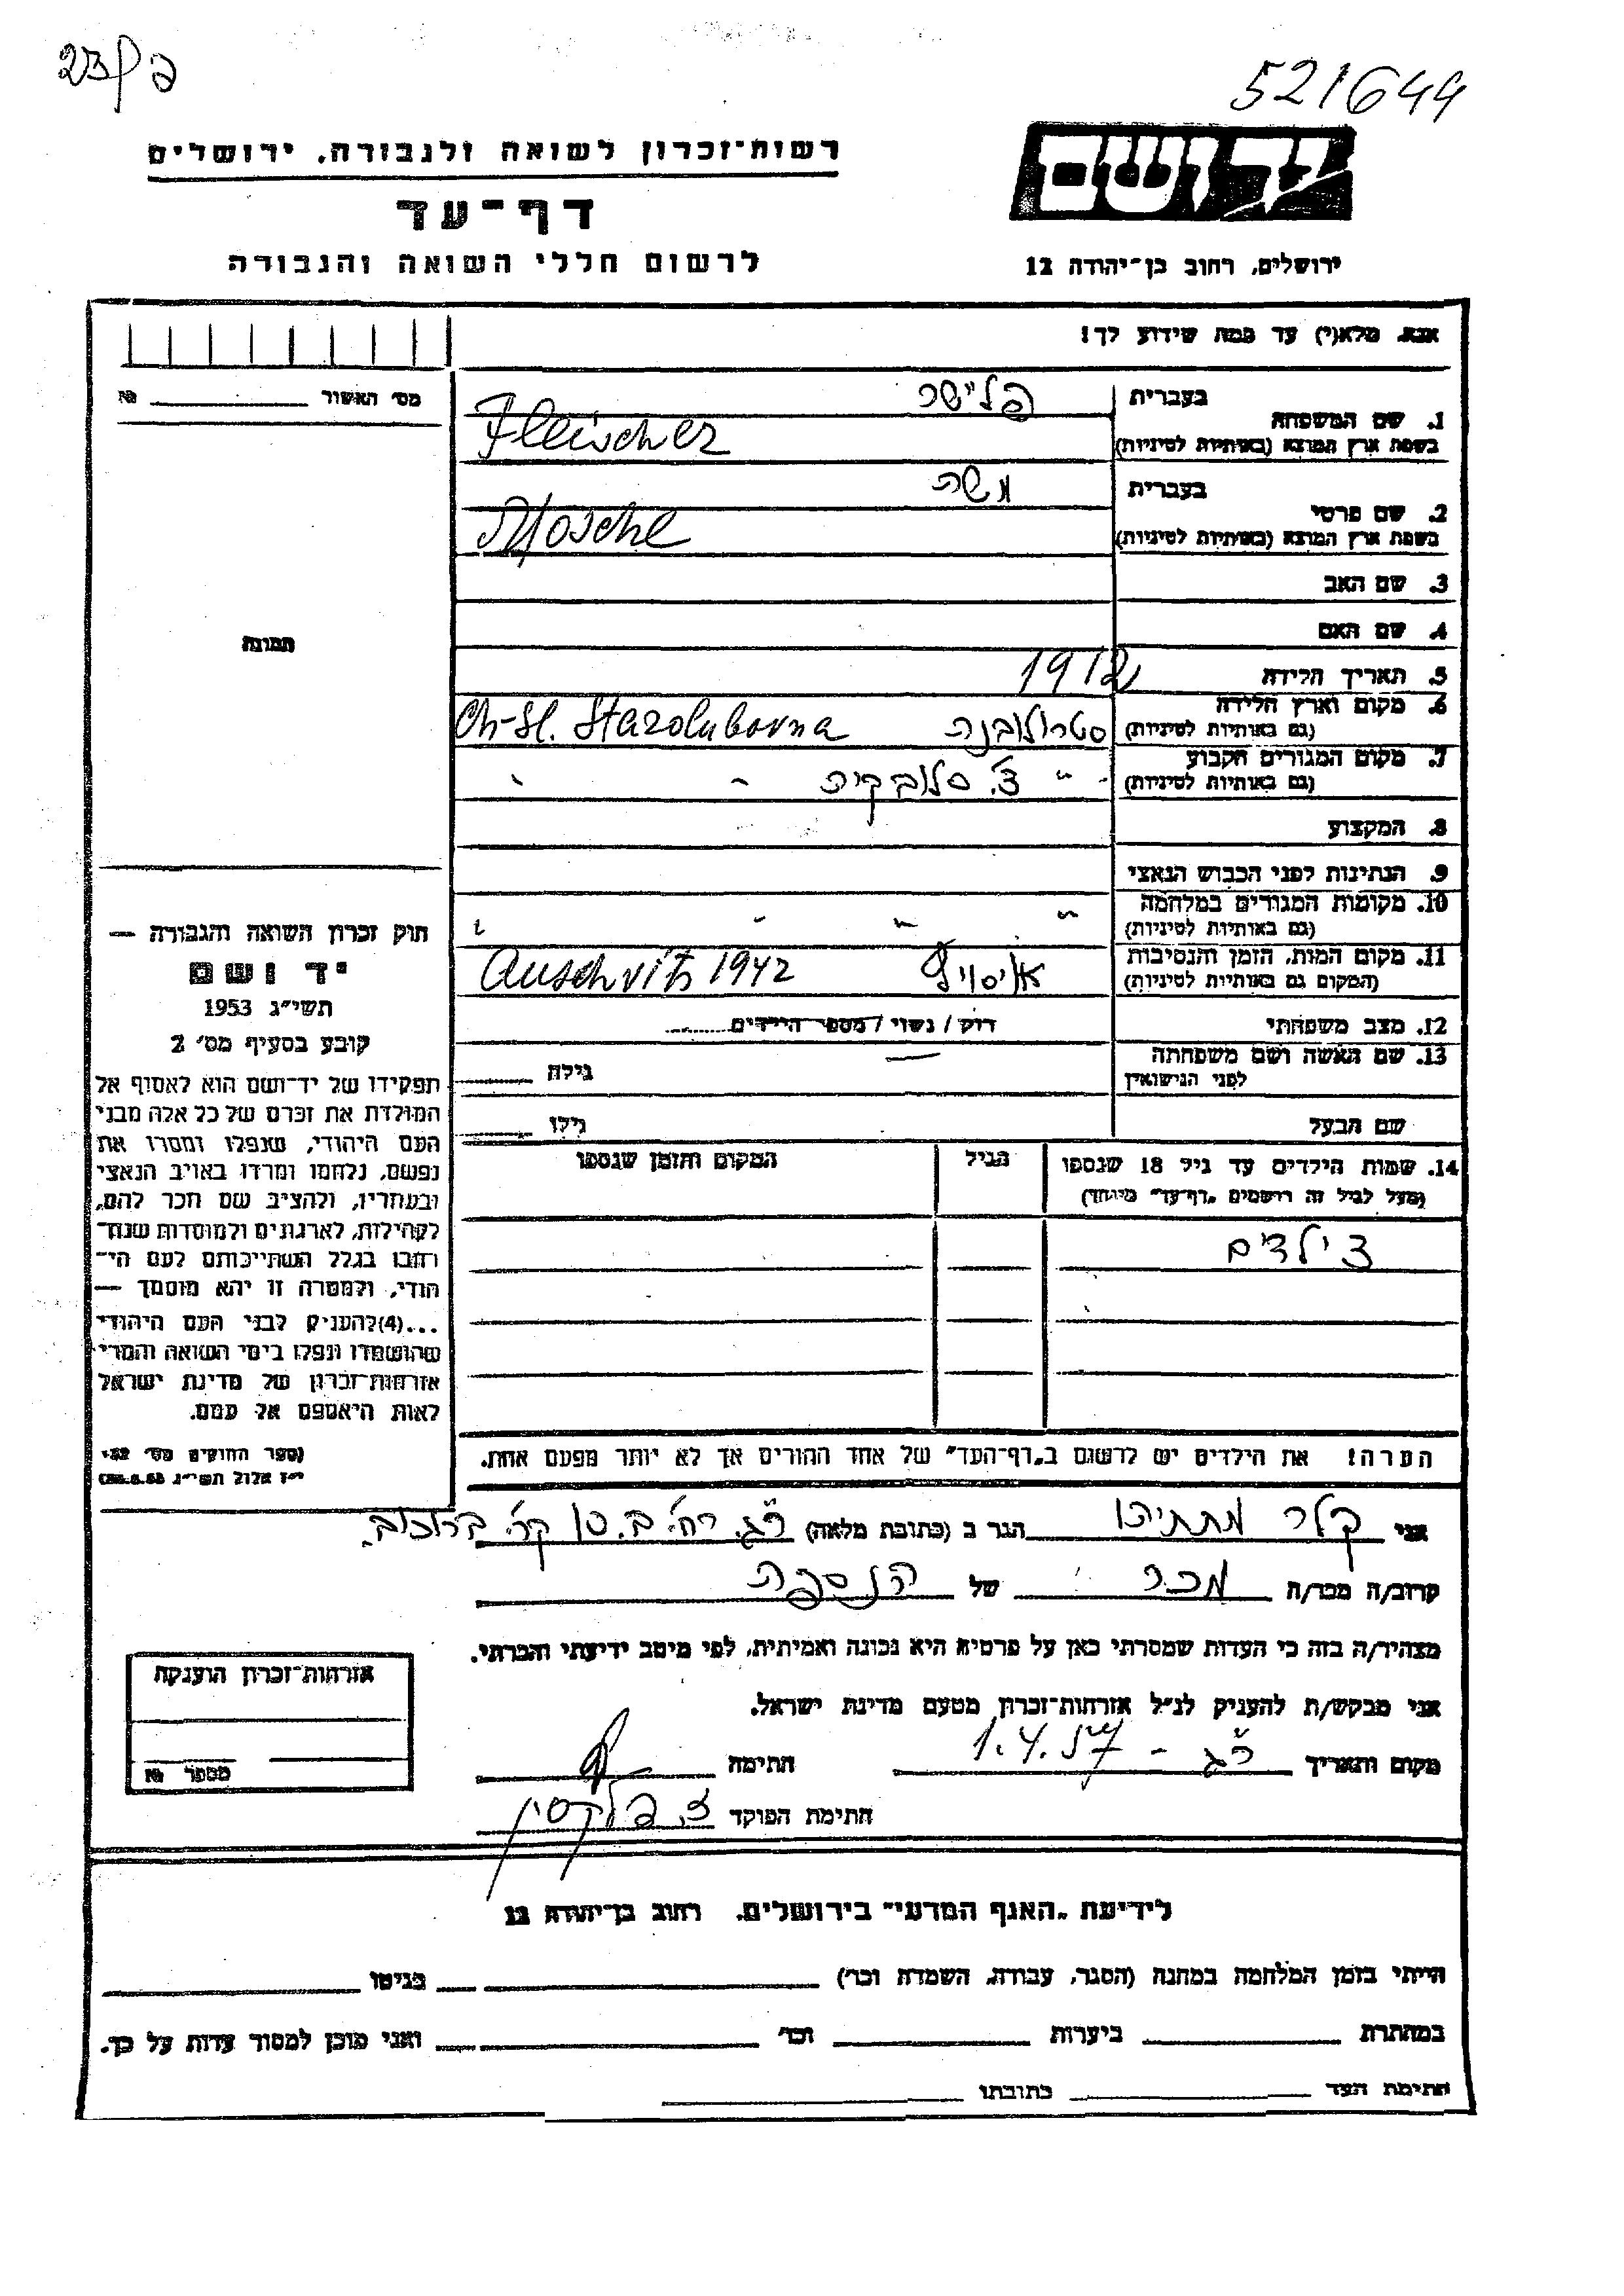 פ/23
521644
יד ושם
רשות־זכרון לשואה ולגבורה, ירושלים
דף־עד
לרשום חללי השואה והגבורה
ירושלים, רחוב בן־יהודה 12
אנא, מלא(י) עד כמה שידוע לך!
מס' האשור № 
תמונה
1. שם המשפחה
בעברית פליישר
בשפת ארץ המוצא (באותיות לטיניות) Fleischer
2. שם פרטי
בעברית משה
בשפת ארץ המוצא (באותיות לטיניות) Mosche
3. שם האב
4. שם האם
5. תאריך הלידה 1912
6. מקום וארץ הלידה סטרולובנה Ch-Sl. Starolubovna
(גם באותיות לטיניות)
7. מקום המגורים הקבוע צ'. סלובקיה
(גם באותיות לטיניות)
8. המקצוע
9. הנתינות לפני הכבוש הנאצי
10. מקומות המגורים במלחמה
(גם באותיות לטיניות)
11. מקום המות, הזמן והנסיבות Auschvitz 1942
(המקום גם באותיות לטיניות)
12. מצב משפחתי רוק / נשוי / מספר הילדים
13. שם האשה ושם משפחתה גילה
לפני הנישואין
שם הבעל גילו
14. שמות הילדים עד גיל 18 שנספו הגיל המקום והזמן שנספו
(מעל לגיל זה רושמים "דף־עד" מיוחד)
ילדים
הערה! את הילדים יש לרשום ב"דף־העד" של אחד ההורים אך לא יותר מפעם אחת.
חוק זכרון השואה והגבורה —
יד ושם
תשי"ג 1953
קובע בסעיף מס' 2
תפקידו של יד־ושם הוא לאסוף אל
המולדת את זכרם של כל אלה מבני
העם היהודי, שנפלו ומסרו את
נפשם, נלחמו ומרדו באויב הנאצי
ובעוזריו, ולהציב שם וזכר להם,
לקהילות, לארגונים ולמוסדות שנח־
רבו בגלל השתייכותם לעם הי־
הודי, ולמטרה זו יהא מוסמך —
...(4) להעניק לבני העם היהודי
שהושמדו ונפלו בימי השואה והמרי
אזרחות־זכרון של מדינת ישראל
לאות היאספם אל עמם.
(ספר החוקים מס' 132
י"ז אלול תשי"ג 28.8.53)
אני קלר מתתיהו הגר ב (כתובת מלאה) ר"ג רח' ב. 10 קר'
קרוב/ה מכר/ה מכר של הנספה
מצהיר/ה בזה כי העדות שמסרתי כאן על פרטיה היא נכונה ואמיתית, לפי מיטב ידיעתי והכרתי.
אני מבקש/ת להעניק לנ"ל אזרחות־זכרון מטעם מדינת ישראל.
מקום ותאריך ר"ג - 1.4.57 חתימה
חתימת הפוקד
אזרחות־זכרון הוענקה
מספר №
לידיעת "האגף המדעי" בירושלים, רחוב בן־יהודה 12
הייתי בזמן המלחמה במחנה (הסגר, עבודה, השמדה וכו') בגיטו
במחתרת ביערות וכו' ואני מוכן למסור עדות על כך.
חתימת העד כתובתו